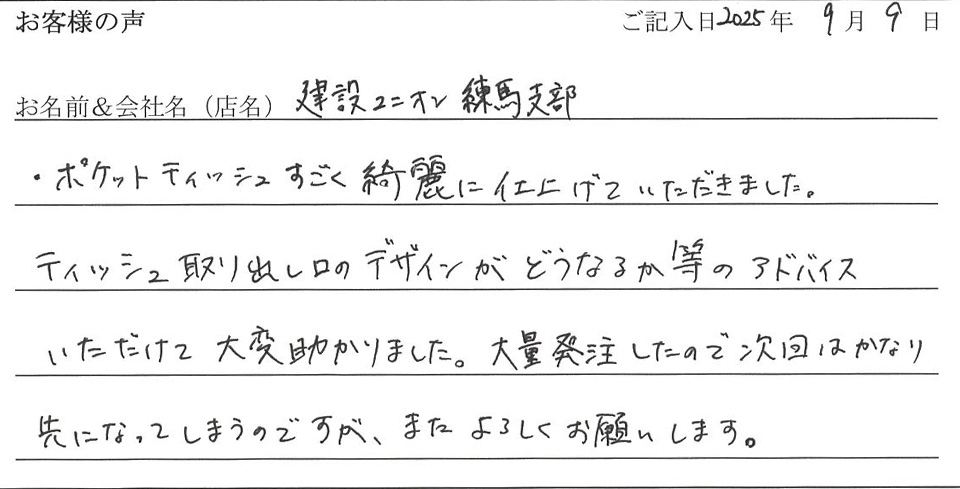 お客様の声 ご記入日2025年 9月 9日
お名前＆会社名（店名） 建設ユニオン 練馬支部
・ポケットティッシュすごく綺麗に仕上げていただきました。
ティッシュ取り出し口のデザインがどうなるか等のアドバイス
いただけて大変助かりました。大量発注したので次回はかなり
先になってしまうのですが、またよろしくお願いします。